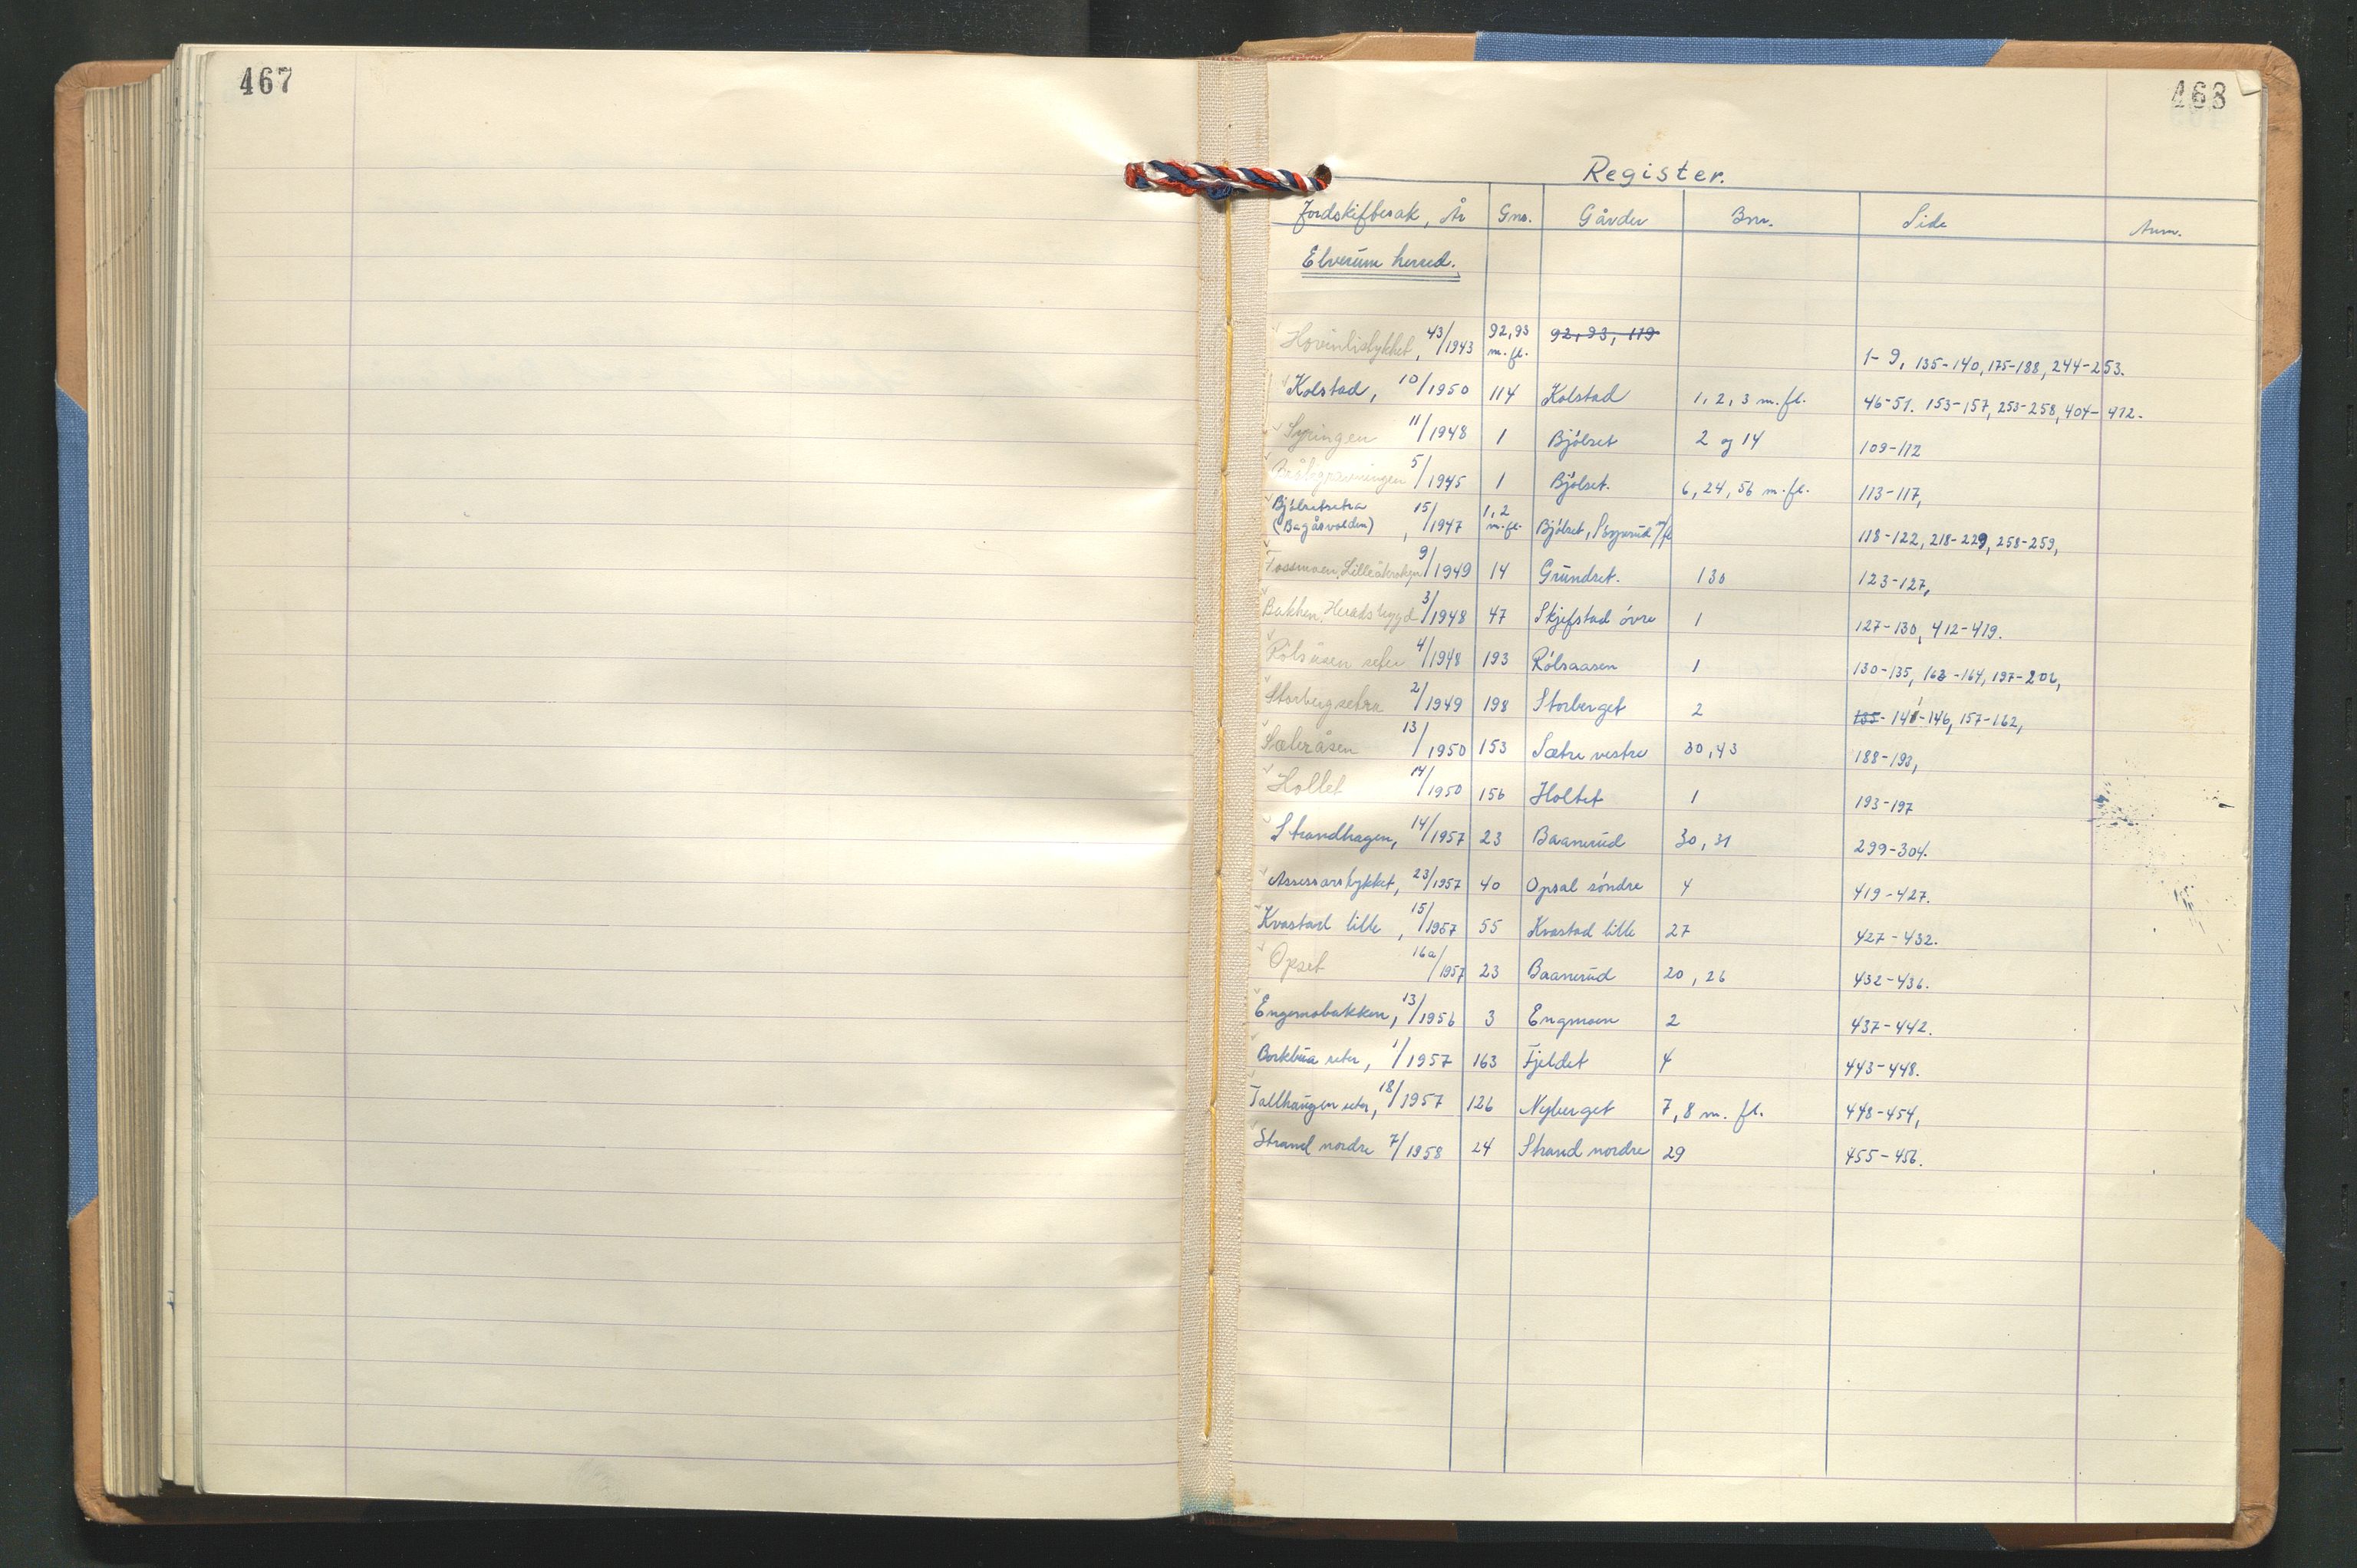 467
468
Register.
Jordskiftesak, År Gnr. Gårder Bnr. Side Anm.
Elverum herred.
Hovinlistykket, 43/1943 92,93 m.fl. 92, 93, 119 1-9, 135-140, 175-188, 244-253.
Kolstad, 10/1950 114 Kolstad 1, 2, 3 m.fl. 46-51. 153-157, 253-258, 404-412.
Syringen 11/1948 1 Bjölset 2 og 14 109-112
5/1945 1 Bjölset. 6, 24, 56 m.fl. 113-117,
Bjölsetsetra (Bagårvolden), 15/1947 1,2 m.fl. Bjölset, m/fl 118-122, 218-229, 258-259,
Fossmoen, Lilleåkroken 9/1949 14 Grundset. 130 123-127,
Bakken, Heradsbygd 3/1948 47 Skjefstad övre 1 127-130, 412-419.
Rölsåsen seter 4/1948 193 Rölsaasen 1 130-135, 162-164, 197-206,
Storbergsetra 2/1949 198 Storberget 2 135- 141-146, 157-162,
Sæteråsen 13/1950 153 Sætre vestre 30, 43 188-193,
Holtet 14/1950 156 Holtet 1 193-197
Strandhagen, 14/1957 23 Baanerud 30, 31 299-304.
Assessorstykket, 23/1957 40 Opsal söndre 4 419-427.
Kvastad lille, 15/1957 55 Kvastad lille 27 427-432.
Opset 16a/1957 23 Baanerud 20, 26 432-436.
Engemobakken, 13/1956 3 Engmoen 2 437-442.
Borkbua seter, 1/1957 163 Fjeldet 4 443-448.
Tallhaugen seter, 18/1957 126 Nyberget 7, 8 m. fl. 448-454,
Strand nordre 7/1958 24 Strand nordre 29 455-456.